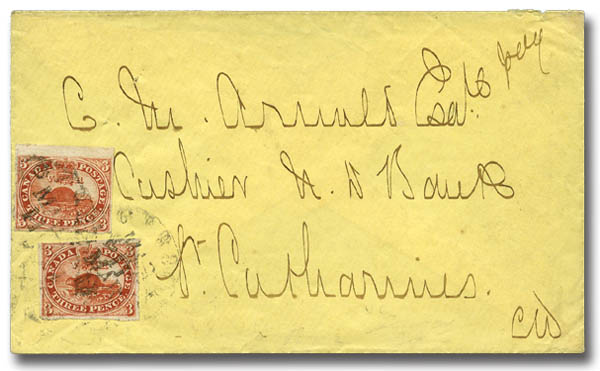 C. M. Arnold Esqr
Cashier N. D Bank
St. Catharines.
CW
3 CANADA POSTAGE 3
3 THREE PENCE 3
3 CANADA POSTAGE 3
3 THREE PENCE 3